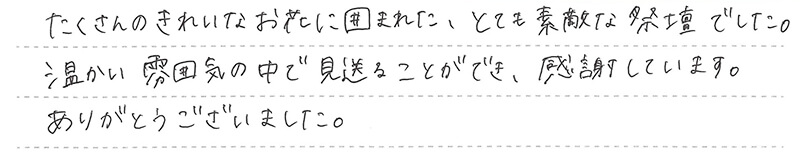 たくさんのきれいなお花に囲まれた、とても素敵な祭壇でした。
温かい雰囲気の中で見送ることができ、感謝しています。
ありがとうございました。